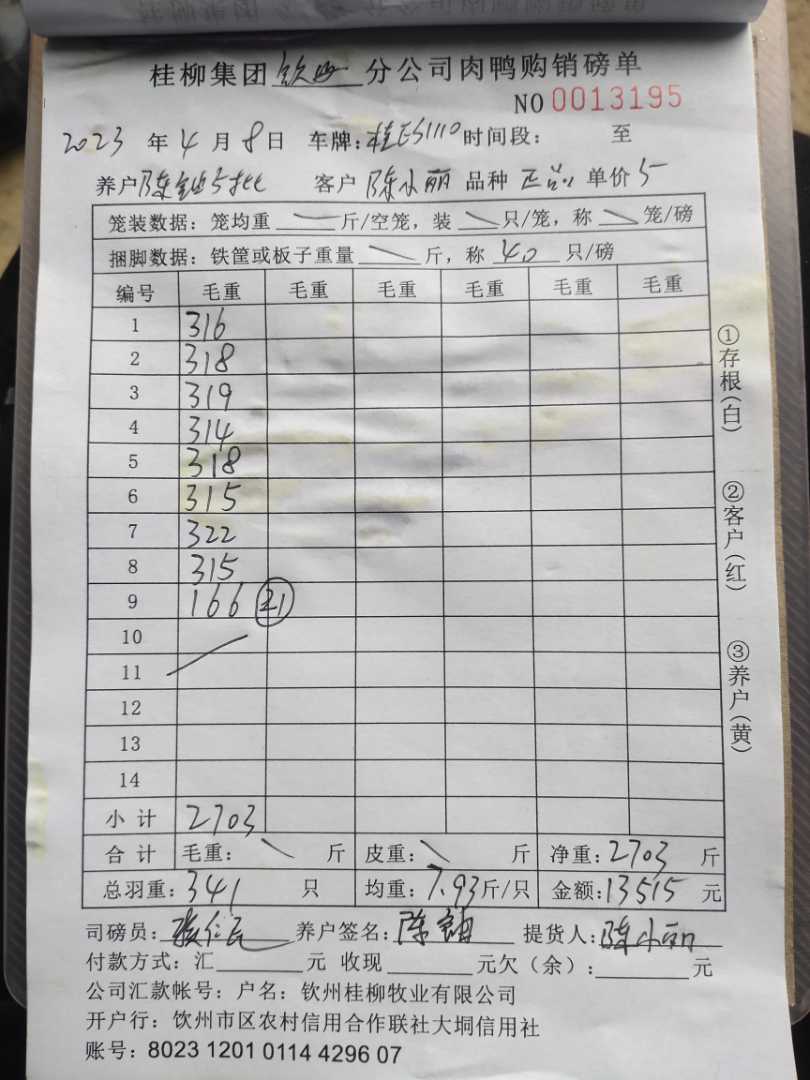 桂柳集团钦州分公司肉鸭购销磅单
NO 0013195
2023 年 4 月 8 日 车牌: 桂ES1110 时间段: 至
养户 陈 客户 陈小丽 品种 正品 单价 5
笼装数据: 笼均重 斤/空笼, 装 只/笼, 称 笼/磅
捆脚数据: 铁筐或板子重量 斤, 称 40 只/磅
编号 毛重 毛重 毛重 毛重 毛重 毛重
1 316
2 318
3 319
4 314
5 318
6 315
7 322
8 315
9 166 21
10
11
12
13
14
小计 2703
合计 毛重: 斤 皮重: 斤 净重: 2703 斤
总羽重: 341 只 均重: 7.93 斤/只 金额: 13515 元
司磅员: 养户签名: 陈 提货人: 陈小丽
付款方式: 汇 元 收现 元欠(余): 元
公司汇款帐号: 户名: 钦州桂柳牧业有限公司
开户行: 钦州市区农村信用合作联社大垌信用社
账号: 8023 1201 0114 4296 07
①存根(白)
②客户(红)
③养户(黄)